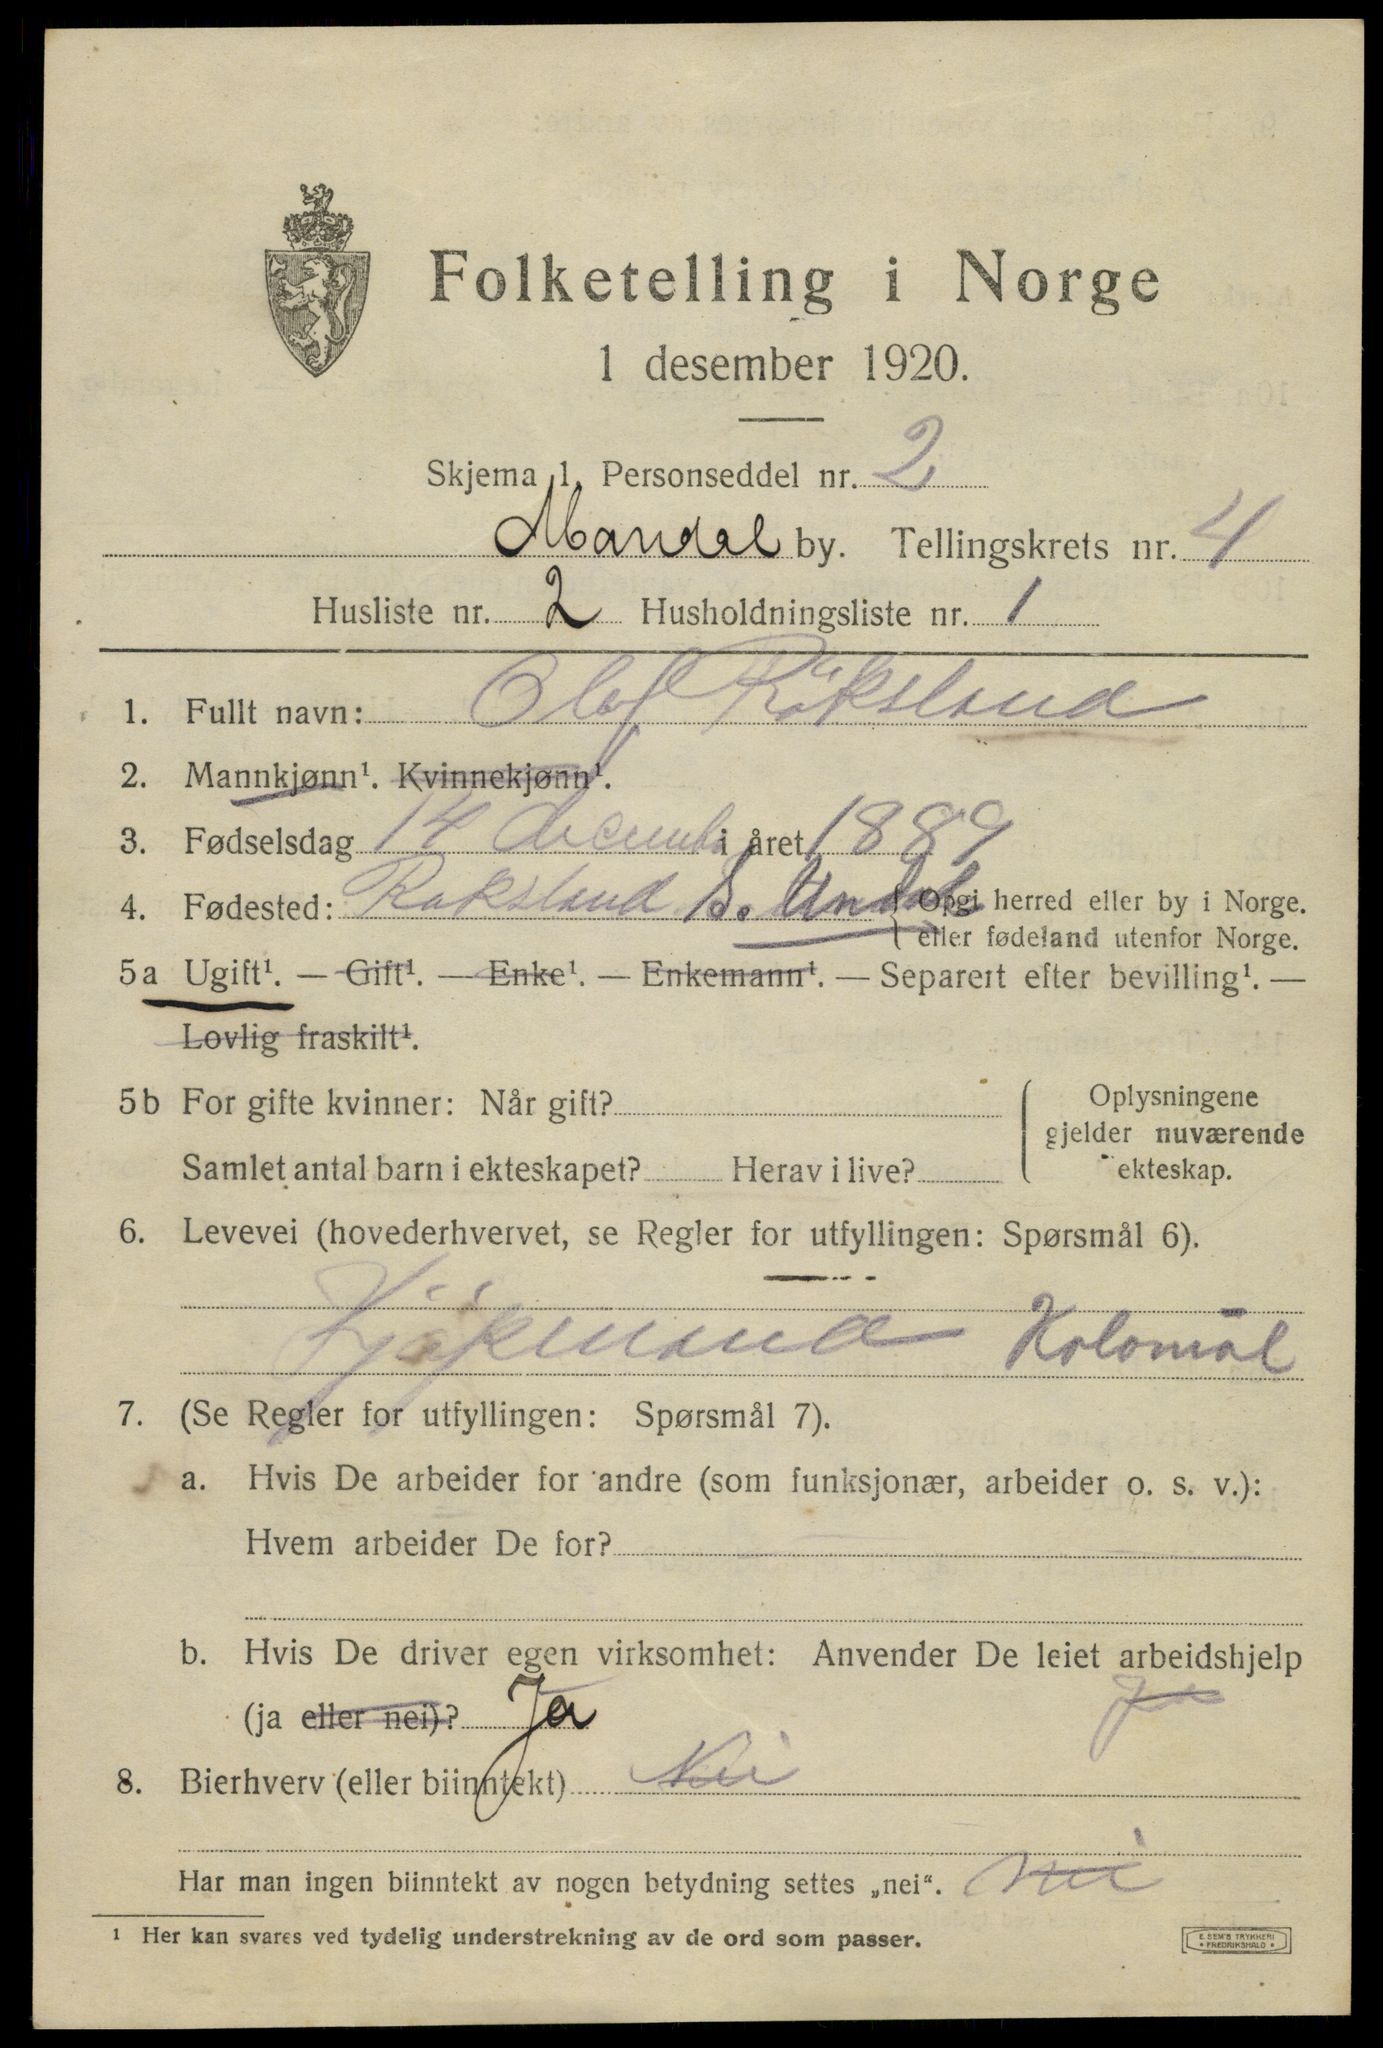 Folketelling i Norge
1 desember 1920.
Skjema 1. Personseddel nr. 2
Mandal by. Tellingskrets nr. 4
Husliste nr. 2 Husholdningsliste nr. 1
1. Fullt navn: Olaf Röksland
2. Mannkjønn¹. Kvinnekjønn¹.
3. Fødselsdag 14 december i året 1889
4. Fødested: Röksland S. Undal { Opgi herred eller by i Norge.
eller fødeland utenfor Norge.
5a Ugift¹. — Gift¹. — Enke¹. — Enkemann¹. — Separert efter bevilling¹. —
Lovlig fraskilt¹.
5b For gifte kvinner: Når gift?
Samlet antal barn i ekteskapet? Herav i live?
Oplysningene
gjelder nuværende
ekteskap.
6. Levevei (hovederhvervet, se Regler for utfyllingen: Spørsmål 6).
Kjøpmand Kolonial
7. (Se Regler for utfyllingen: Spørsmål 7).
a. Hvis De arbeider for andre (som funksjonær, arbeider o. s. v.):
Hvem arbeider De for?
b. Hvis De driver egen virksomhet: Anvender De leiet arbeidshjelp
(ja eller nei)? Ja Ja
8. Bierhverv (eller biinntekt) Nei
Har man ingen biinntekt av nogen betydning settes „nei“. Nei
¹ Her kan svares ved tydelig understrekning av de ord som passer.
E. SEM'S TRYKKERI
FREDRIKSHALD